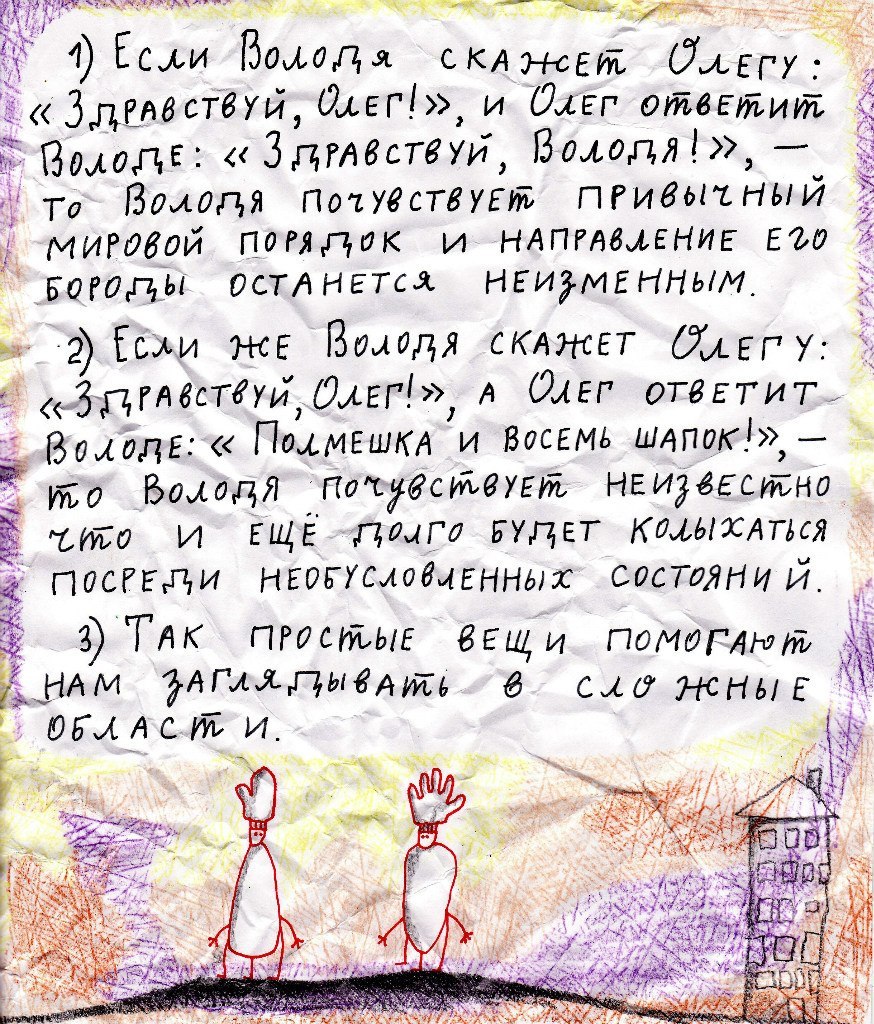 1) Если Володя скажет Олегу:
«Здравствуй, Олег!», и Олег ответит
Володе: «Здравствуй, Володя!», —
то Володя почувствует привычный
мировой порядок и направление его
бороды останется неизменным.
2) Если же Володя скажет Олегу:
«Здравствуй, Олег!», а Олег ответит
Володе: «Полмешка и восемь шапок!», —
то Володя почувствует неизвестно
что и ещё долго будет колыхаться
посреди необусловленных состояний.
3) Так простые вещи помогают
нам заглядывать в сложные
области.